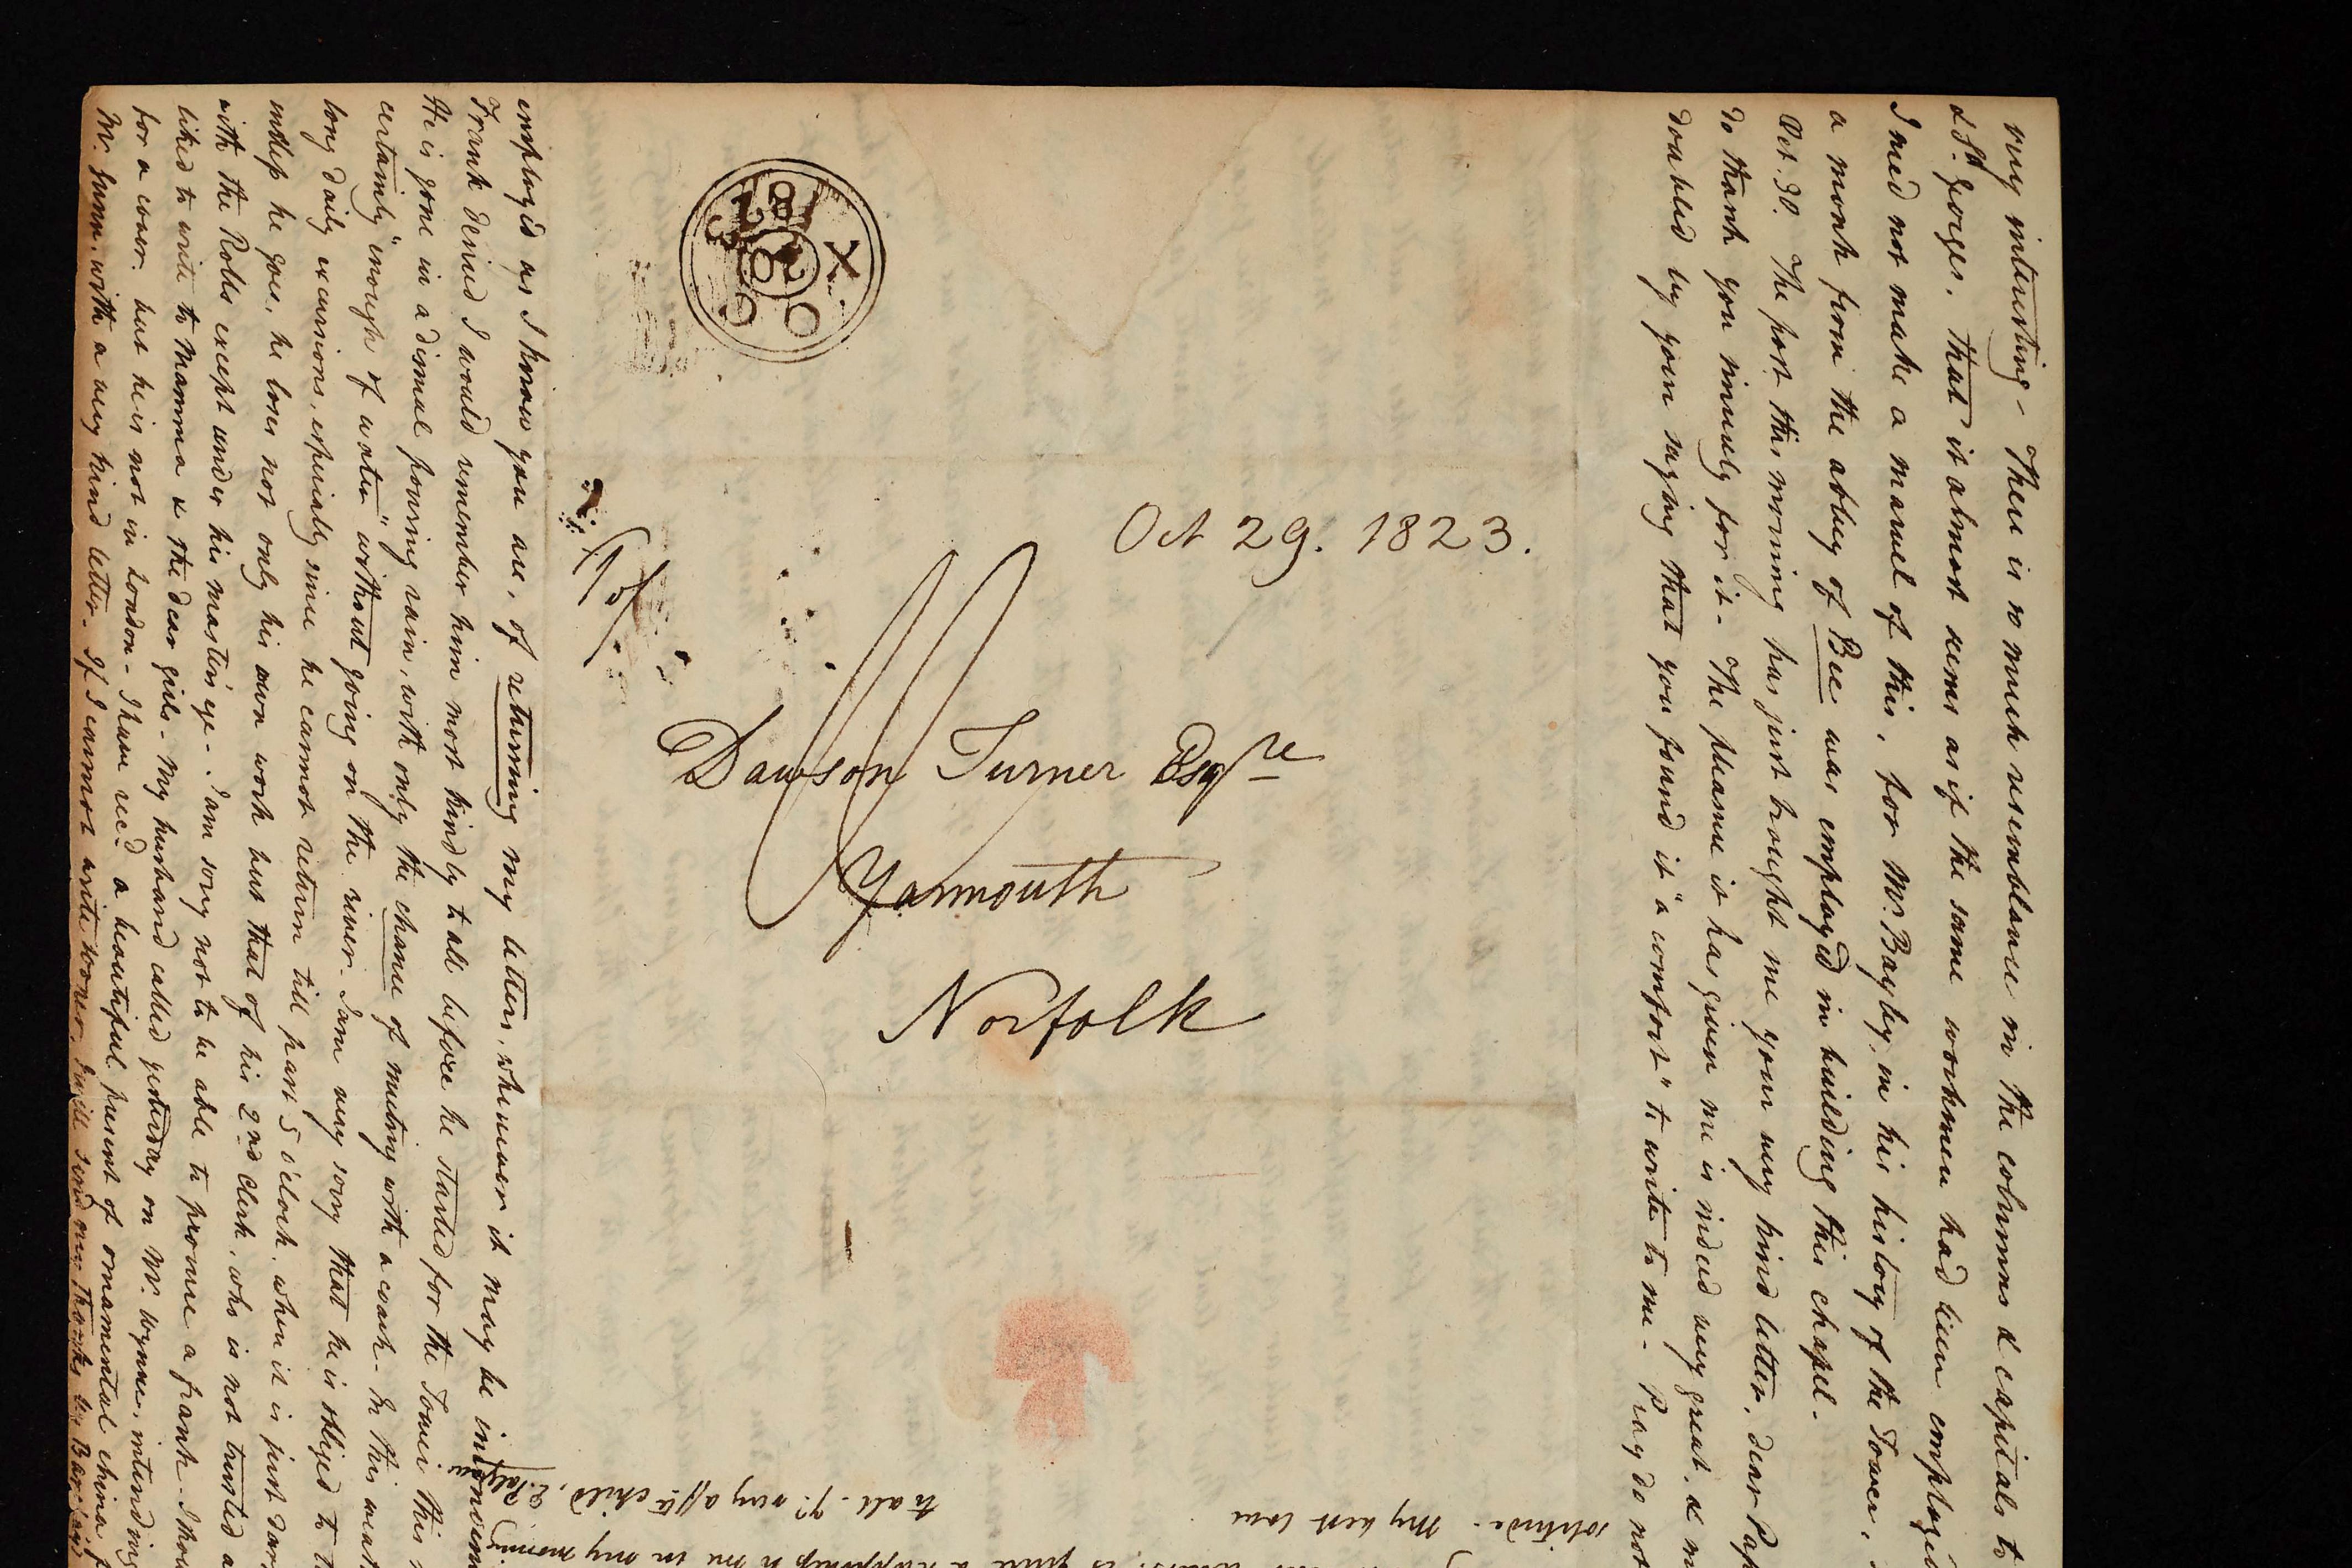 very interesting - There is so much resemblance in the columns & capitals to
& St. Georges. that it almost seems as if the same workmen had been employed
I need not make a marvel of this, for Mr. Bayley, in his history of the Tower,
a monk from the abbey of Bec was employed in building this chapel -
Oct. 30. The post this morning has just brought me your very kind letter, dear Pap
do thank you sincerely for it - The pleasure it has given me is indeed very great, &
doubled by your saying that you found it "a comfort" to write to me - Pray do not
Oct 29. 1823.
Dawson Turner Esqre
Yarmouth
Norfolk
employ'd as I know you are, of returning my letters, whenever it may be inconveni
Frank desired I would remember him most kindly to all before he started for the Tower this
He is gone in a dismal pouring rain, with only the chance of meeting with a coach - In this weat
certainly "enough of water" without going on the river. I am very sorry that he is obliged to
long daily excursions, especially since he cannot return till past 5 o'clock, when it is just dar
he goes, he loses not only his own work but that of his 2nd Clerk, who is not trusted a
with the Rolls except under his master's eye - I am sorry not to be able to procure a frank - I
liked to write to Mamma & the dear girls - My husband called yesterday on Mr. Wynne, intending
for a cover. but he is not in London - I have recd. a beautiful present of ornamental china
Mr. Gunn. with a very kind letter - If I cannot write sooner, I will send my thanks by
solitude - My best love
to all - Yr. very affte child, E. Palgrave
is quite a happiness to me in my morning